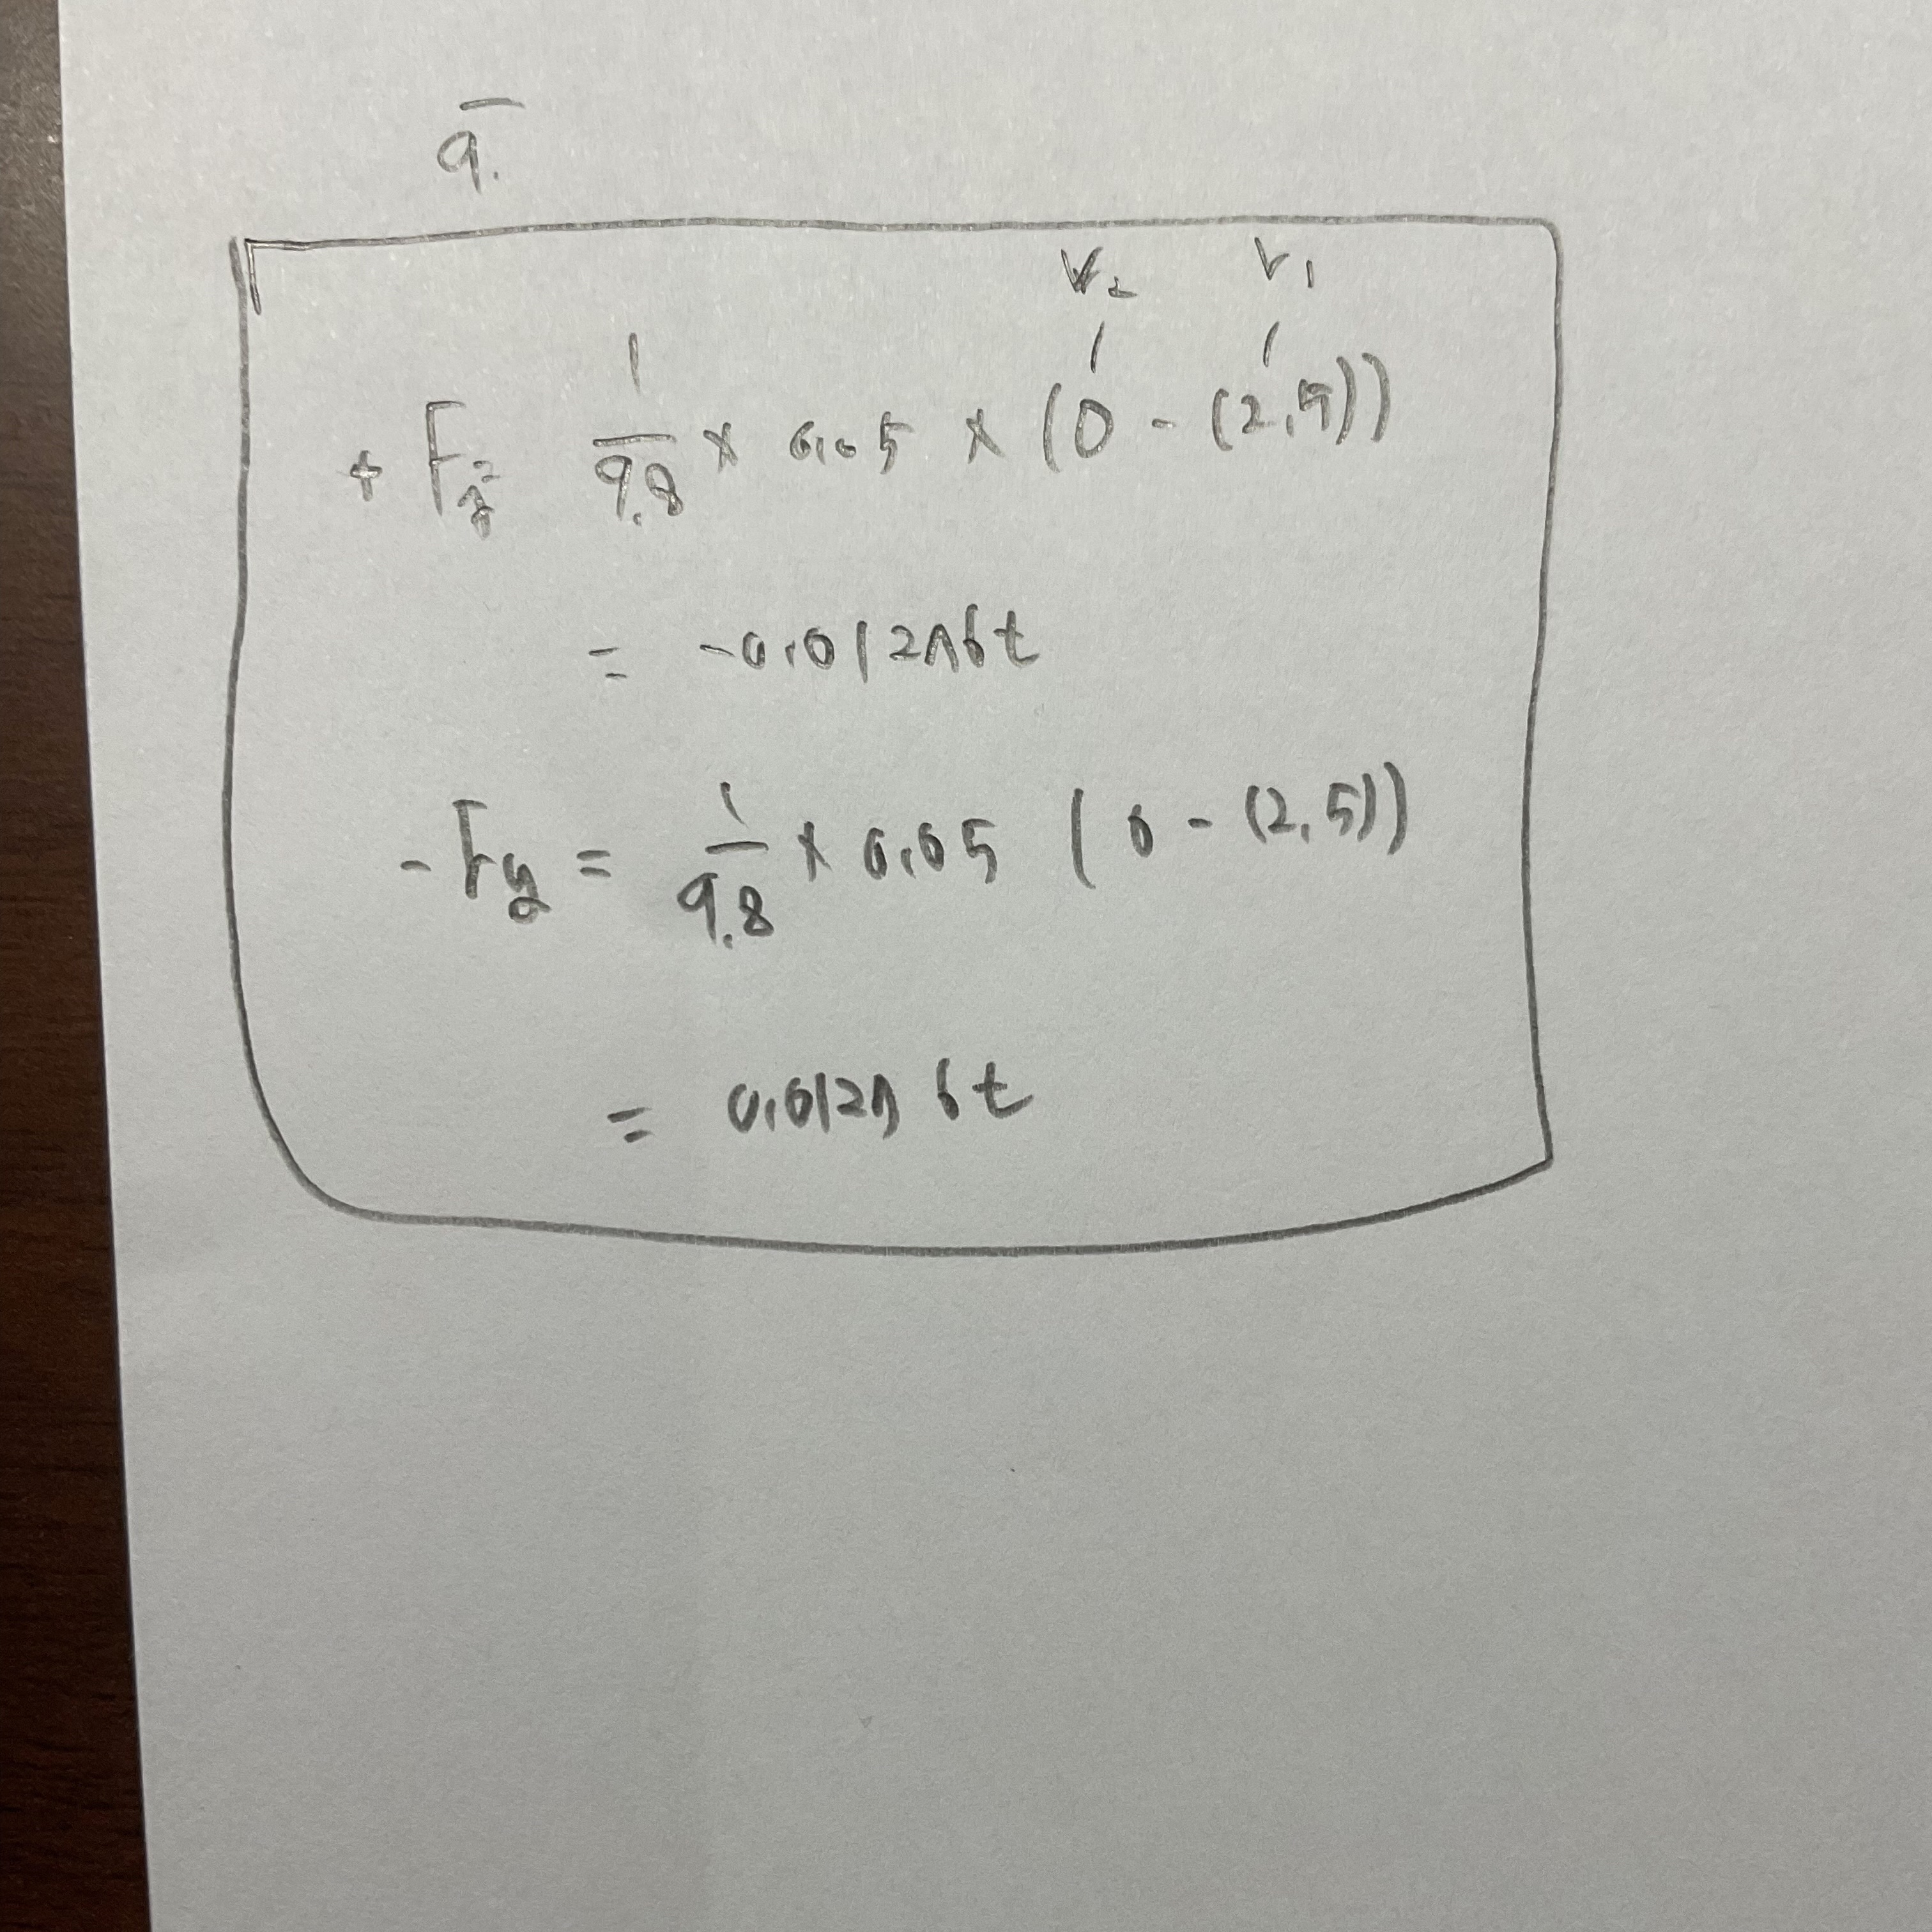 9.
V₂ V₁
+ Fy = 1/9.8 × 0.05 × (0 - (2.5))
= -0.01276t
- Fy = 1/9.8 × 0.05 (0 - (2.5))
= 0.01276t